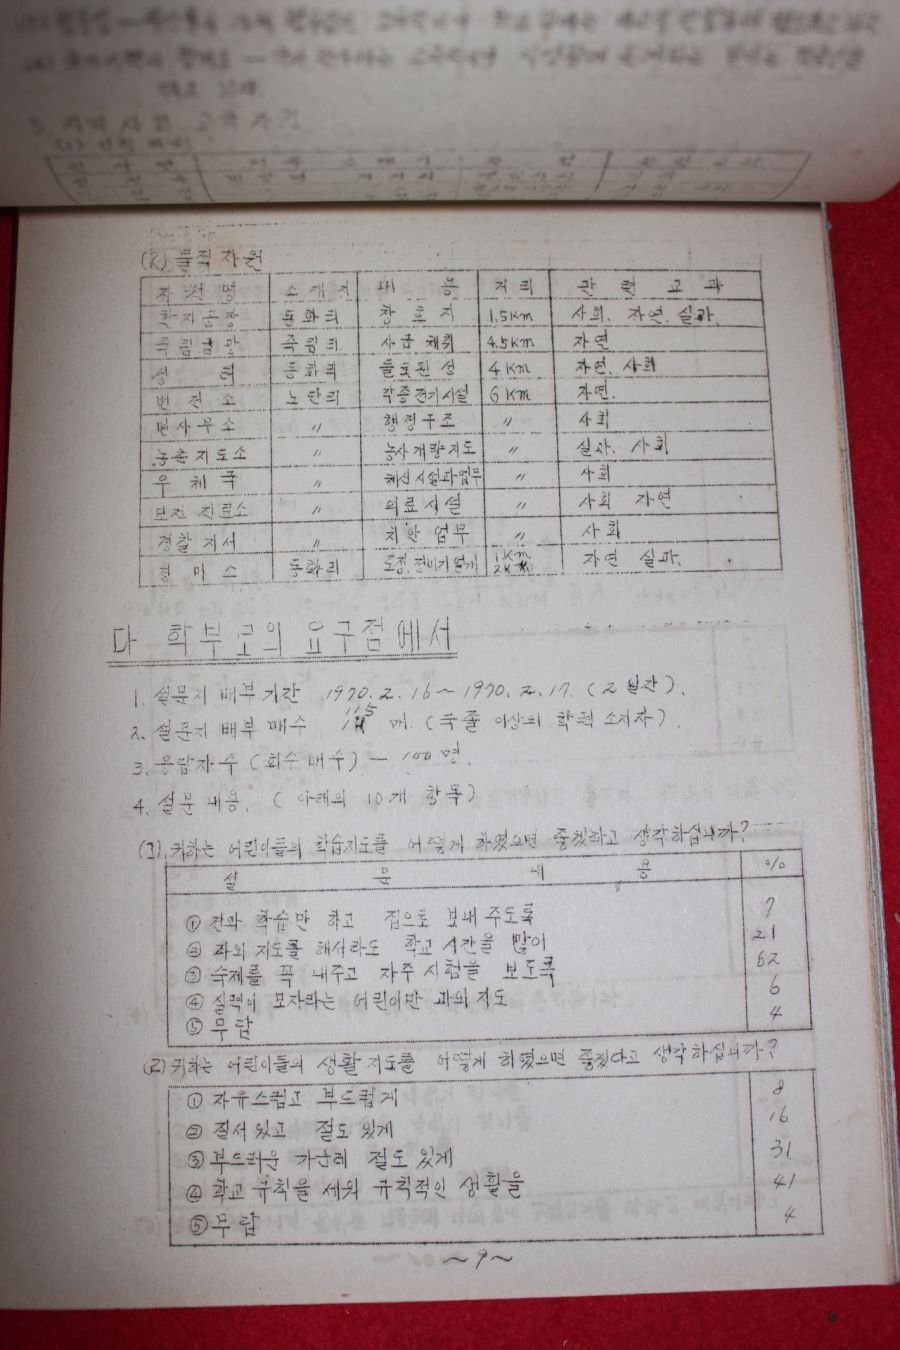 3. 지역 사회
(2) 물적 자원
자 원 명 소 재 지 내 용 거 리 관 련 교 과
동화리 창 호 지 1.5Km 사회. 자연. 실과.
죽림의 사금 채취 4.5Km 자연
성 터 동화리 돌로된 성 4Km 자연. 사회
변 전 소 노탄리 각종전기시설 6Km 자연.
면사무소 〃 행정구조 〃 사회
농촌지도소 〃 농사개량지도 〃 실과. 사회
우 체 국 〃 체신시설과업무 〃 사회
보건 진료소 〃 의료시설 〃 사회 자연
경찰 지서 〃 치안 업무 〃 사회
정 미 소 동화리 1Km 2Km 자연 실과.
다 학부모의 요구점에서
1. 설문지 배부기간 1970. 2. 16 ~ 1970. 2. 17. (2일간).
2. 설문지 배부 매수 115 매. (국졸 이상의 학력 소지자).
3. 응답자수 (회수매수) — 100명.
4. 설문내용. (아래의 10개 항목)
(1). 귀하는 어린이들의 학습지도를 어떻게 하였으면 좋겠하고 생각하십니까?
설 문 내 용 %
① 전과 학습만 하고 집으로 보내주도록 7
② 과외 지도를 해서라도 학교 시간을 많이 21
③ 숙제를 꼭 내주고 자주 시험을 보도록 62
④ 실력이 모자라는 어린이만 과외지도 6
⑤ 무답 4
(2) 귀하는 어린이들의 생활지도를 어떻게 하였으면 좋겠다고 생각하십니까?
① 자유스럽고 부드럽게 8
② 질서있고 절도 있게 16
③ 부드러운 가운데 절도 있게 31
④ 학교 규칙을 세워 규칙적인 생활을 41
⑤ 무답 4
~9~